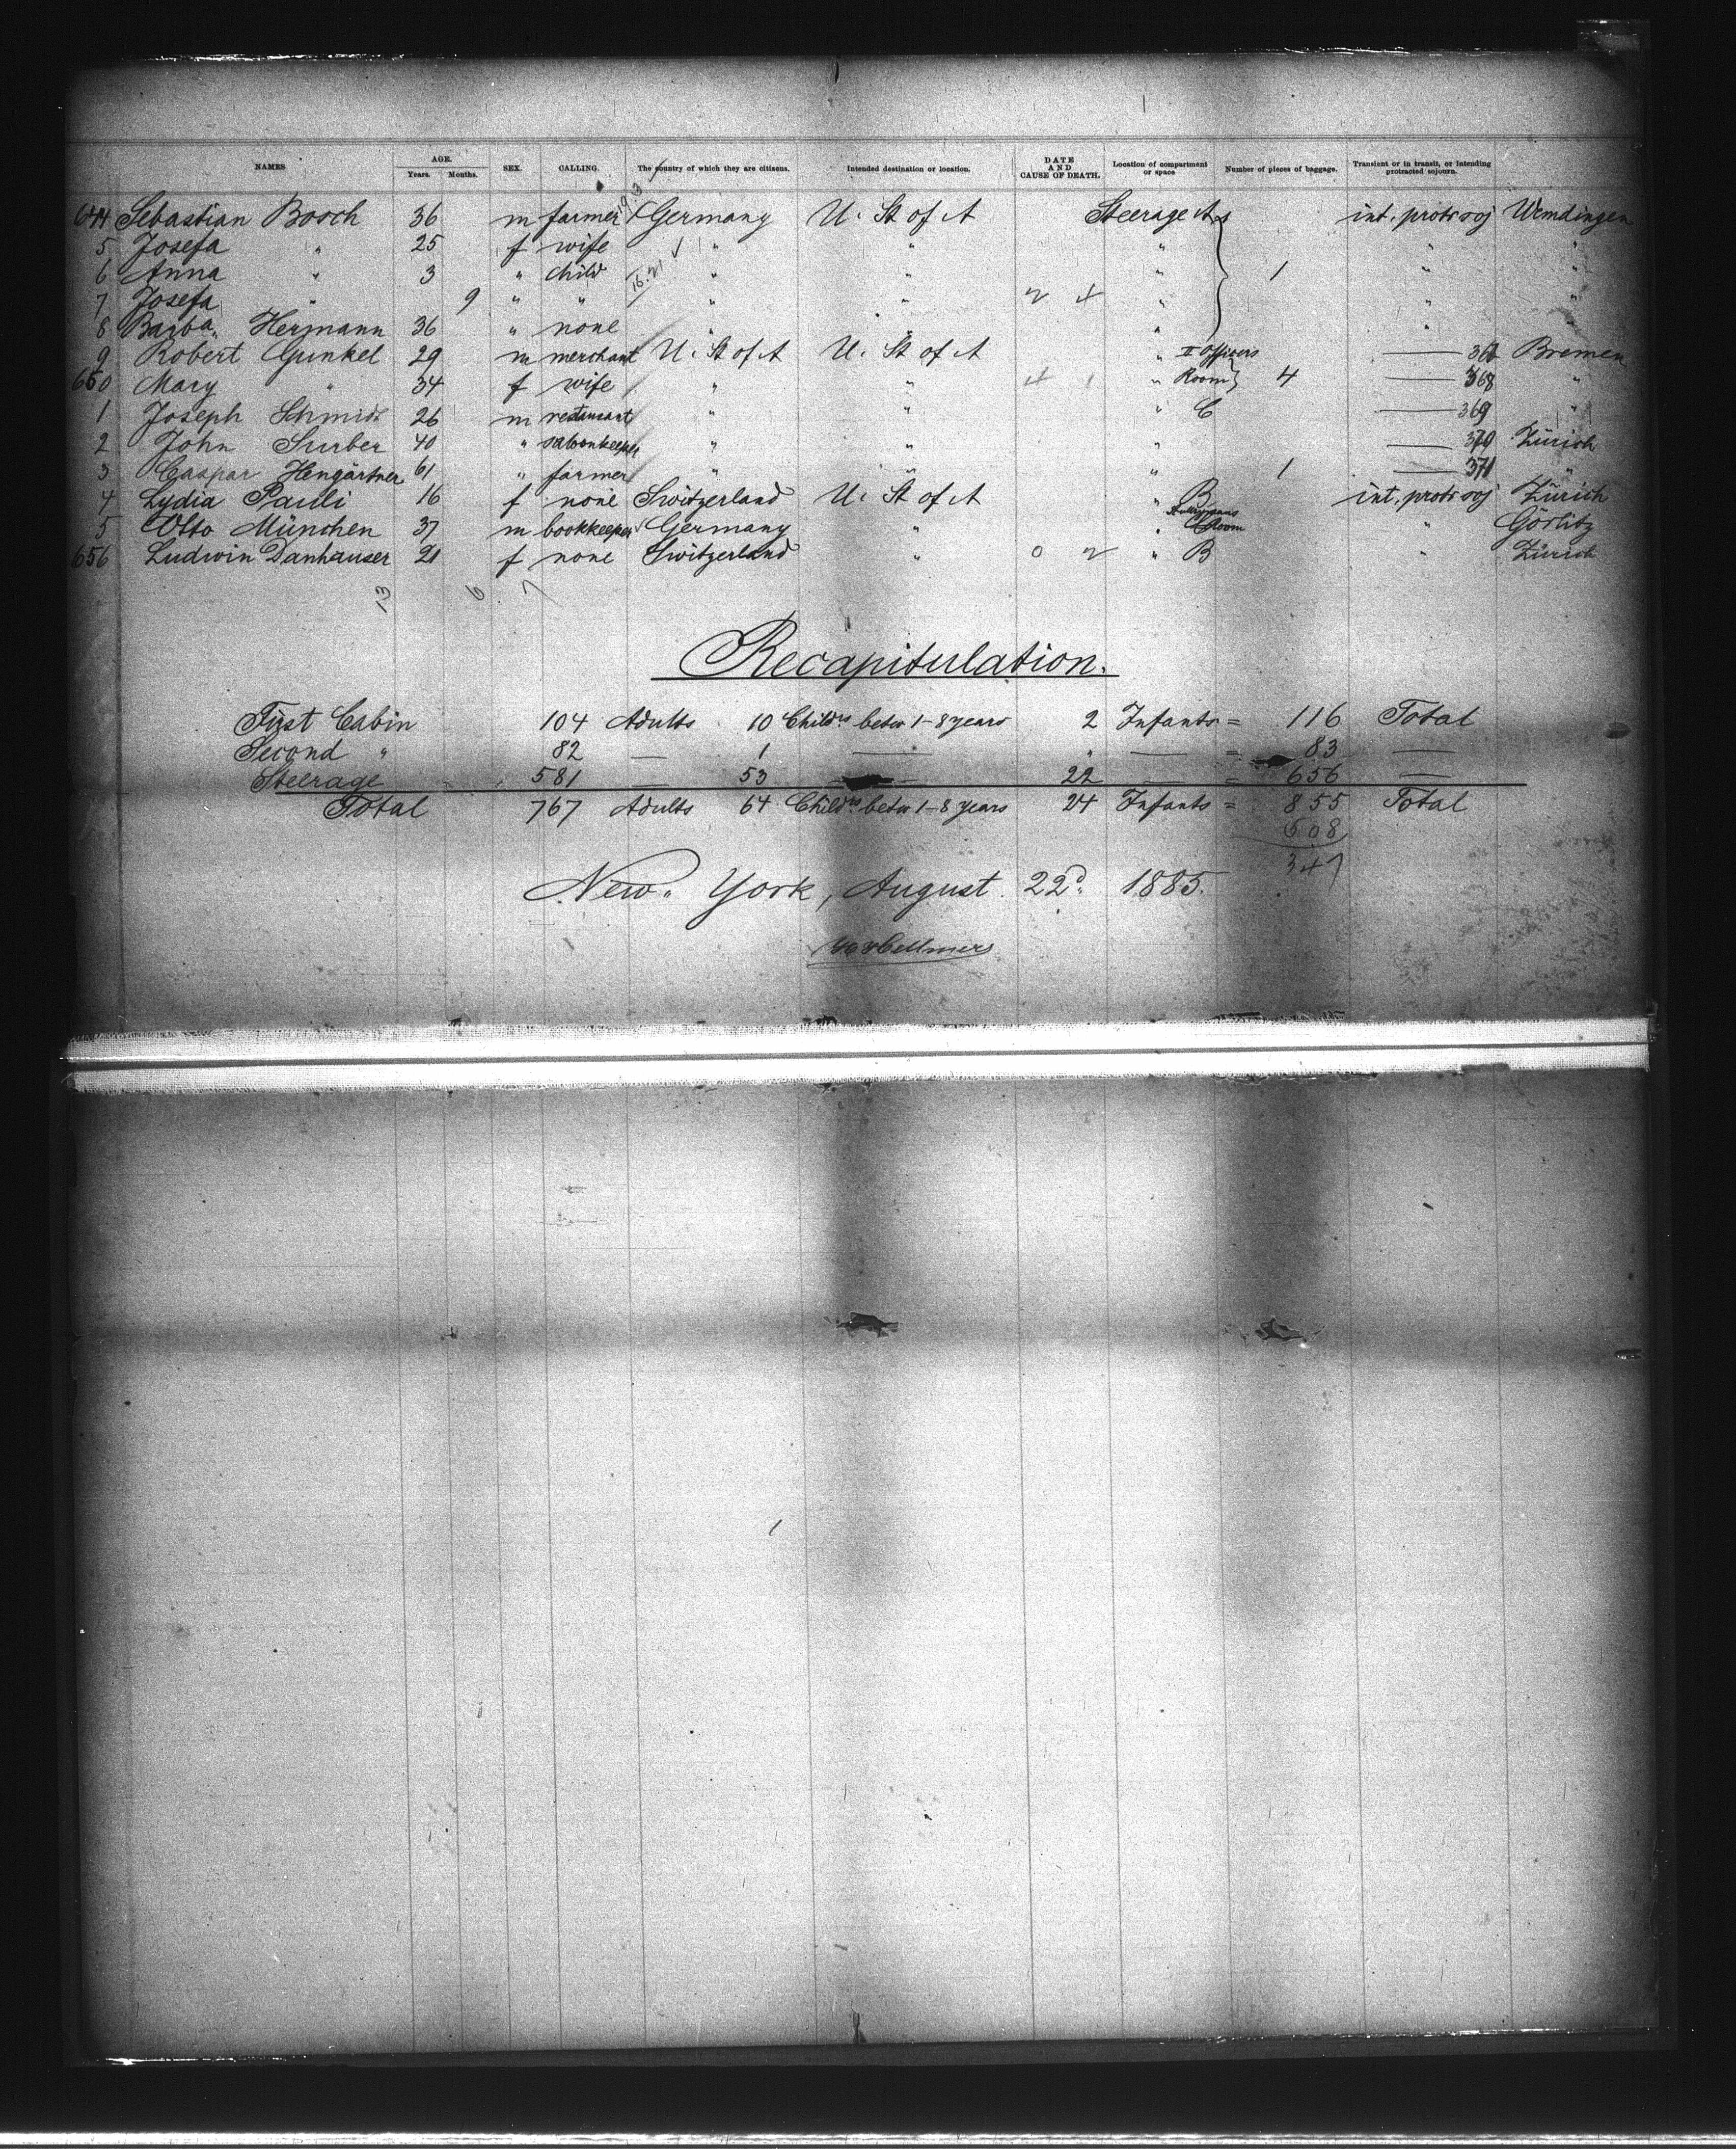 NAMES AGE. Years. Months. SEX. CALLING. The country of which they are citizens. Intended destination or location. DATE AND CAUSE OF DEATH. Location of compartment or space Number of pieces of baggage. Transient or in transit, or intending protracted sojourn.
644 Sebastian Bosch 36 m farmer Germany U. St of A Steerage A int. protr soj Wemdingen
5 Josefa " 25 f wife " " " " "
6 Anna " 3 " child " " " 1 " "
7 Josefa " 9 " " " " 2 4 " " "
8 Barba. Hermann 36 " none " " " " "
9 Robert Gunkel 29 m merchant U. St of A U. St of A " II Officers Bremen
650 Mary " 34 f wife " " 4 1 " Room 4 368 "
1 Joseph Schmidt 26 m restaurant " " " C 369 "
2 John Surber 40 " saloonkeeper " " " 370 Zürich
3 Caspar Hengärtner 61 " farmer " " " 1 371 "
4 Lydia Pauli 16 f none Switzerland U. St of A " B int. protr soj Zürich
5 Otto München 37 m bookkeeper Germany " " Room " Görlitz
656 Ludwin Danhauser 21 f none Switzerland " 0 2 " B " Zürich
13 6 7
Recapitulation.
First Cabin 104 Adults 10 Childrs betw 1-8 years 2 Infants = 116 Total
Second " 82 — 1 — " — = 83 —
Steerage 581 — 53 — 22 — = 656 —
Total 767 Adults 64 Childrs betw 1-8 years 24 Infants = 855 Total
508
347
New York, August 22d 1885.